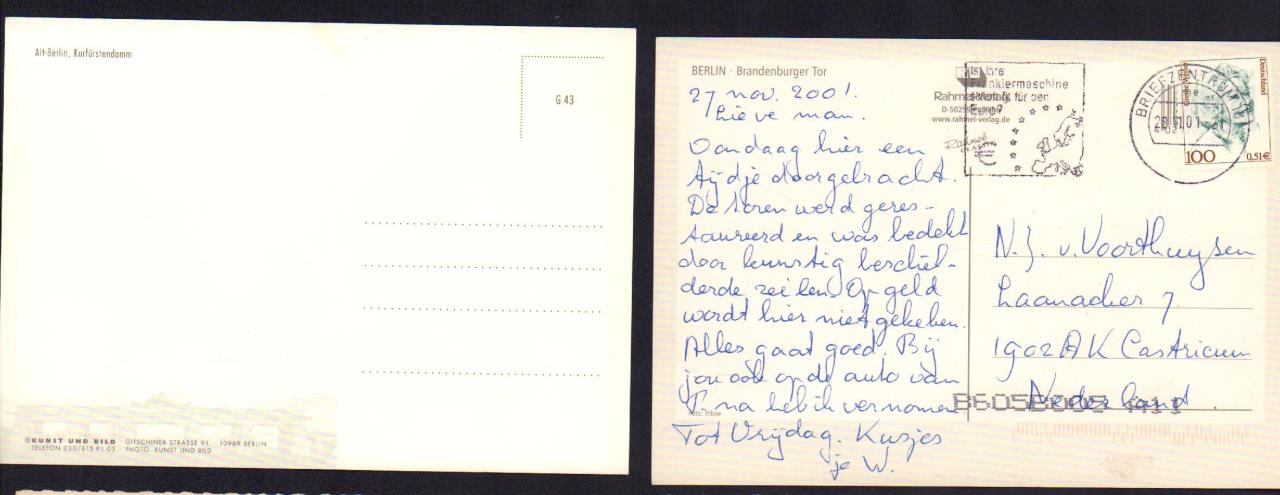 Alt-Berlin, Kurfürstendamm
G 43
©KUNST UND BILD GITSCHINER STRASSE 91 10969 BERLIN
TELEFON 030/615 91 03 · PHOTO KUNST UND BILD
BERLIN · Brandenburger Tor
27 nov. 2001.
Lieve man.
Vandaag hier een
tijdje doorgebracht.
De toren werd geres-
taureerd en was bedekt
door kunstig beschil-
derde zeilen. Op geld
wordt hier niet gekeken.
Alles gaat goed. Bij
jou ook op de auto van
na heb ik vernomen
Tot Vrijdag. Kusjes
je W.
Foto:
Rahmel-Verlag
www.rahmel-verlag.de
Rahmel
Ist Ihre
Frankiermaschine
fit für den
Euro?
€
BRIEFZENTRUM
Deutschland
100
0,51€
N.J. v. Voorthuysen
Laanacker 7
1902AK Castricum
Nederland